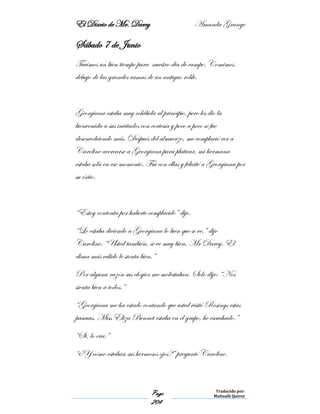 El Diario de Mr. Darcy Amanda Grange
Sábado 7 de Junio
Tuvimos un bien tiempo para nuestro día de campo. Comimos
debajo de las grandes ramas de un antiguo roble.
Georgiana estaba muy cohibida al principio, pero les dio la
bienvenida a sus invitados con cortesía y poco a poco se fue
desenvolviendo más. Después del almuerzo, me complació ver a
Caroline acercarse a Georgiana para platicar, mi hermana
estaba sola en ese momento. Fui con ellas y felicité a Georgiana por
su éxito.
"Estoy contenta por haberte complacido" dijo.
"Le estaba diciendo a Georgiana lo bien que se ve," dijo
Caroline. "Usted también, se ve muy bien, Mr Darcy. El
clima más cálido le sienta bien."
Por alguna razón sus elogios me molestaban. Solo dije: "Nos
sienta bien a todos."
"Georgiana me ha estado contando que usted visitó Rosings estas
pascuas. Miss Eliza Bennet estaba en el grupo, he escuchado."
"Sí, lo era."
"¿Y cómo estaban sus hermosos ojos?" preguntó Caroline.
Page
204
Traducido por:
Malinalli Quiroz